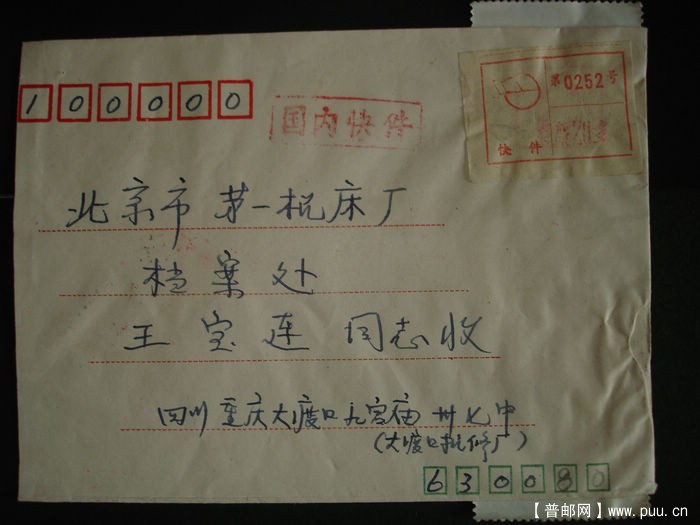 100000
国内快件
第0252号
快件
北京市 第一机床厂
档案处
王宝连 同志收
四川重庆大渡口九宫庙 卅七中
(大渡口机修厂)
630080
【普邮网】www.puu.cn